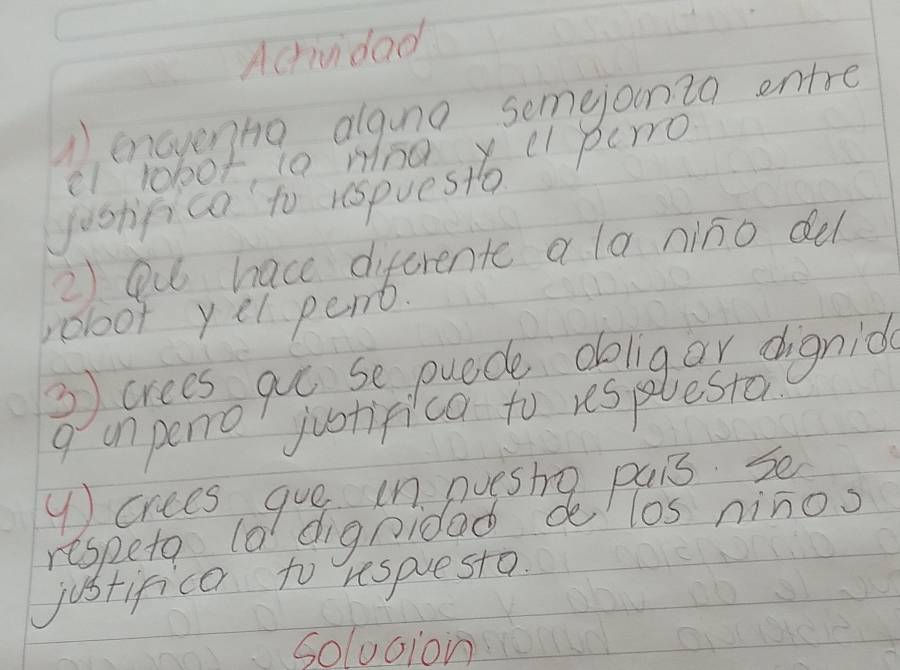 Actividad
1) encuentra alguna semejanza entre
el robot, la niña y el perro
justifica tu respuesta.
2) Que hace diferente a la niña del
robot y el perro.
3) crees que se puede obligar dignida
a un perro justifica tu respuesta.
4) crees que en nuestro pais. se
respeta la dignidad de los niños
justifica tu respuesta.
Solucion